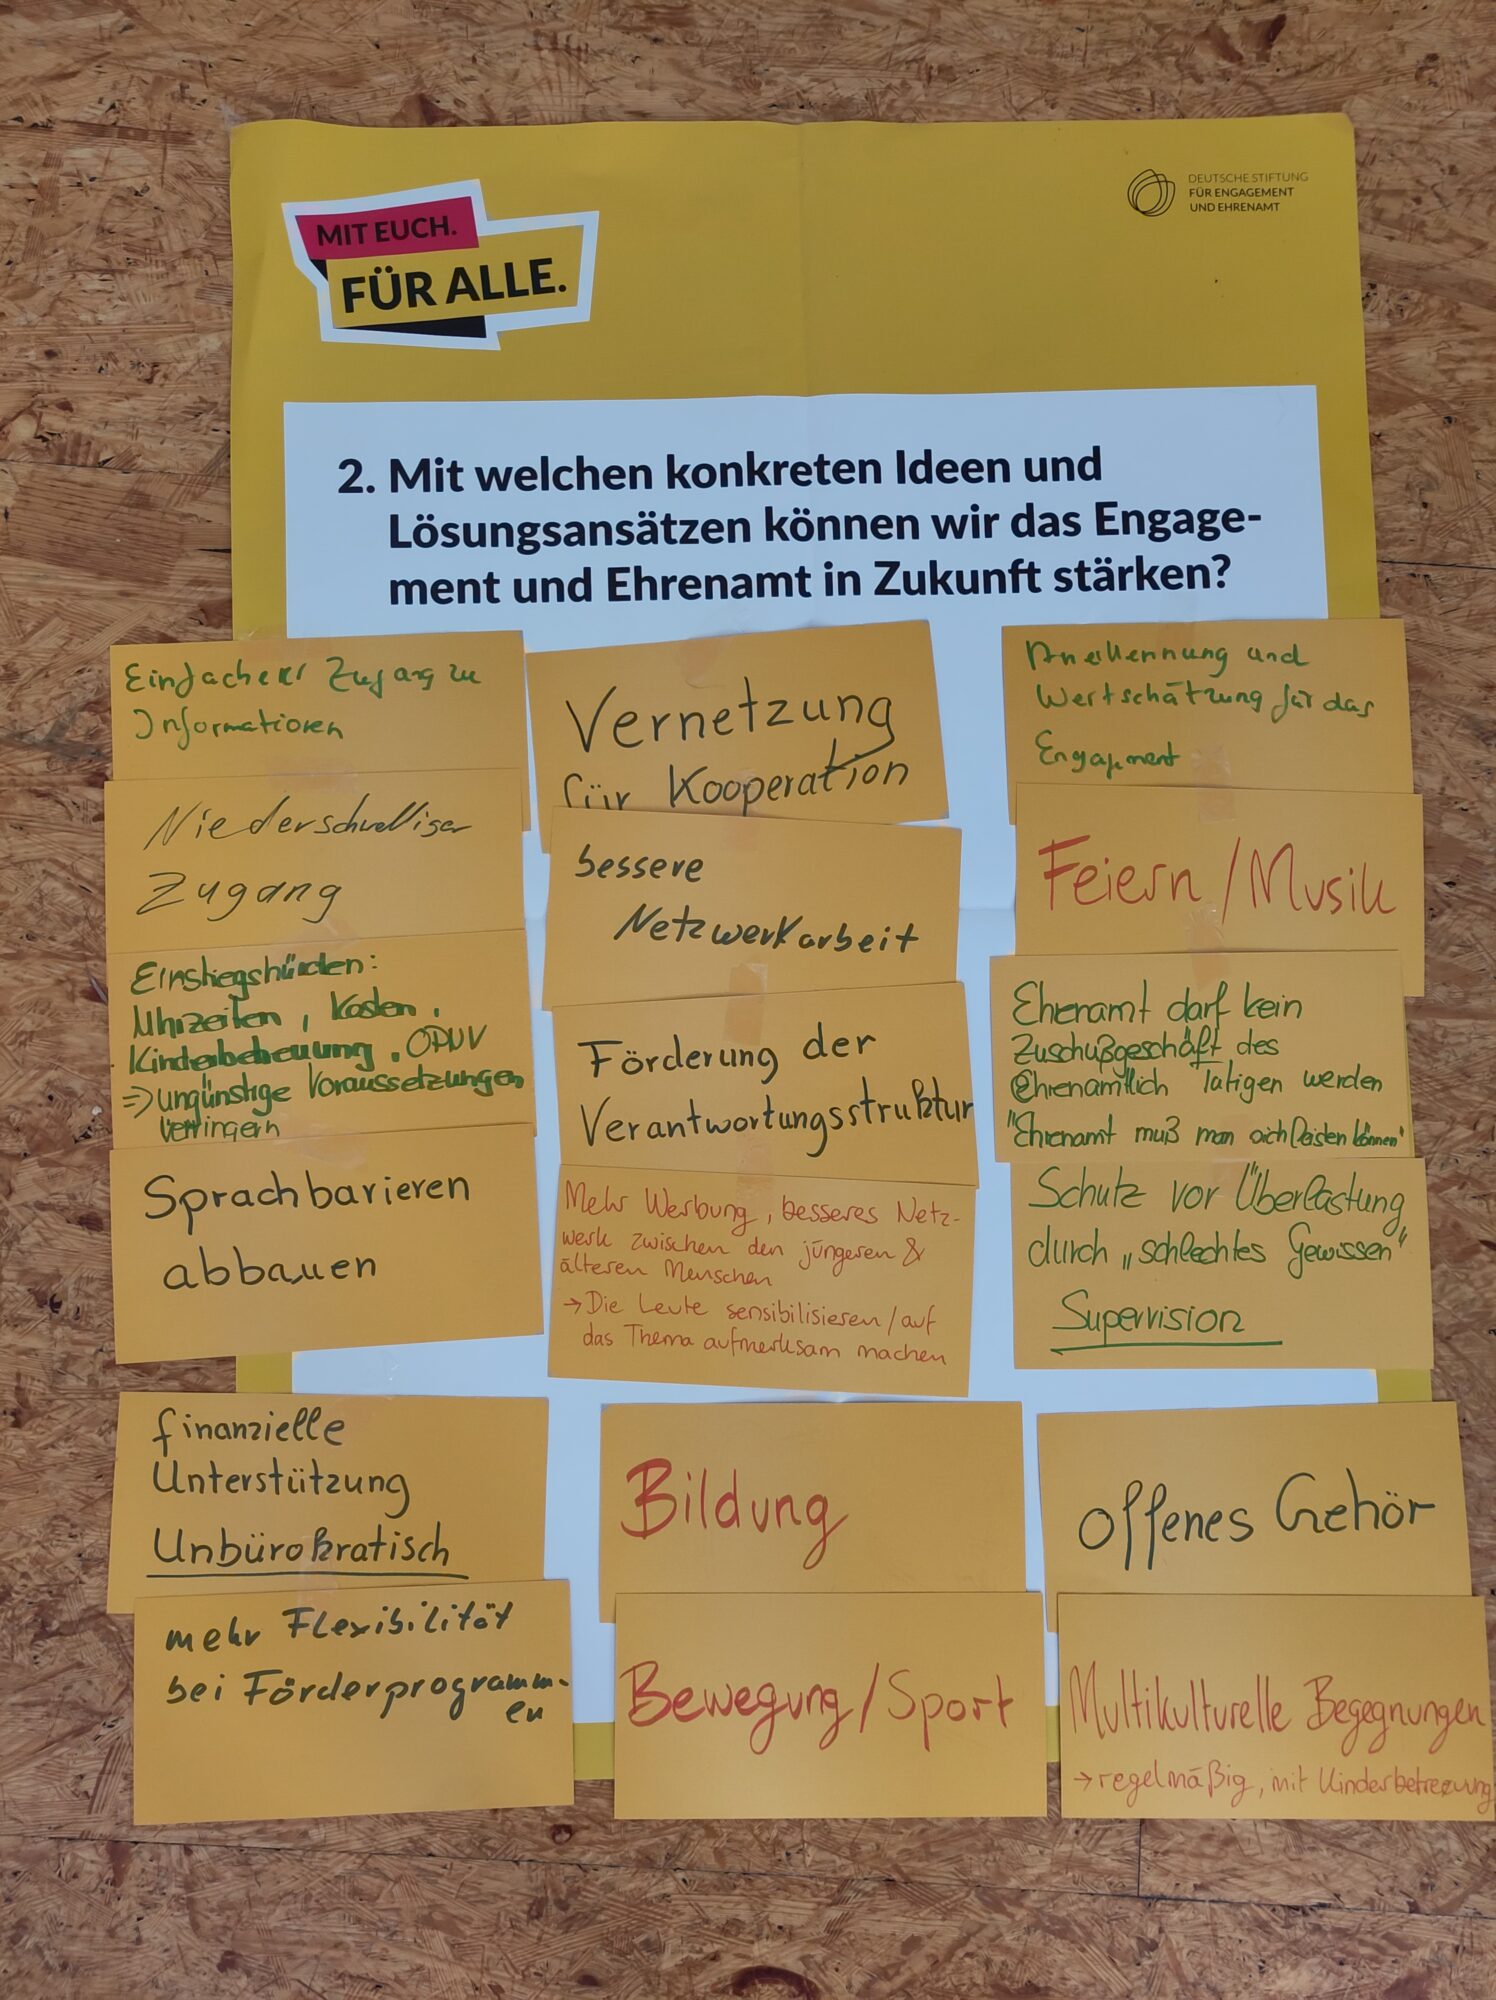 MIT EUCH.
FÜR ALLE.
DEUTSCHE STIFTUNG
FÜR ENGAGEMENT
UND EHRENAMT
2. Mit welchen konkreten Ideen und
Lösungsansätzen können wir das Engage-
ment und Ehrenamt in Zukunft stärken?
Einfacherer Zugang zu
Informationen
Niederschwelliger
Zugang
Einstiegshürden:
Uhrzeiten, Kosten,
Kinderbetreuung, ÖPNV
=> ungünstige Voraussetzungen
verringern
Sprachbarieren
abbauen
finanzielle
Unterstützung
Unbürokratisch
mehr Flexibilität
bei Förderprogramm-
en
Vernetzung
für Kooperation
bessere
Netzwerkarbeit
Förderung der
Verantwortungsstruktur
Mehr Werbung, besseres Netz-
werk zwischen den jüngeren &
älteren Menschen
→ Die Leute sensibilisieren/auf
das Thema aufmerksam machen
Bildung
Bewegung/Sport
Anerkennung und
Wertschätzung für das
Engagement
Feiern/Musik
Ehrenamt darf kein
Zuschußgeschäft des
Ehrenamtlich Tätigen werden
"Ehrenamt muß man sich leisten können"
Schutz vor Überlastung
durch „schlechtes Gewissen"
Supervision
offenes Gehör
Multikulturelle Begegnungen
→ regelmäßig, mit Kinderbetreuung